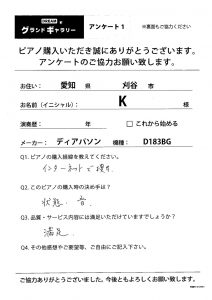 グランドギャラリー アンケート1 ※裏面もご協力ください
ピアノ購入いただき誠にありがとうございます。
アンケートのご協力お願い致します。
お住い: 愛知 県 刈谷 市
お名前(イニシャル): K 様
演奏歴: 年 □ これから始める
メーカー: ディアパソン 機種: D183BG
Q1. ピアノの購入経緯を教えてください。
インターネットで
Q2. このピアノの購入時の決め手は?
状態、音
Q3. 品質・サービス内容には満足いただけていますでしょうか?
満足
Q4. その他感想やご要望等、ご自由にご記入下さい。
ご協力ありがとうございました。今後ともよろしくお願い致します。